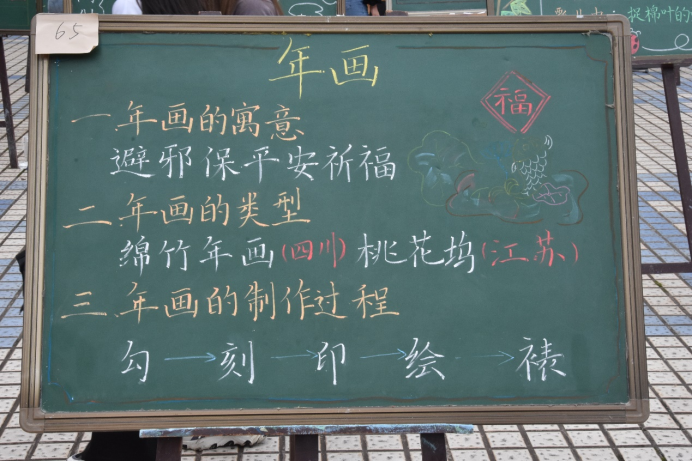 65
年画
福
一.年画的寓意
避邪保平安祈福
二.年画的类型
绵竹年画(四川) 桃花坞(江苏)
三.年画的制作过程
勾→刻→印→绘→裱